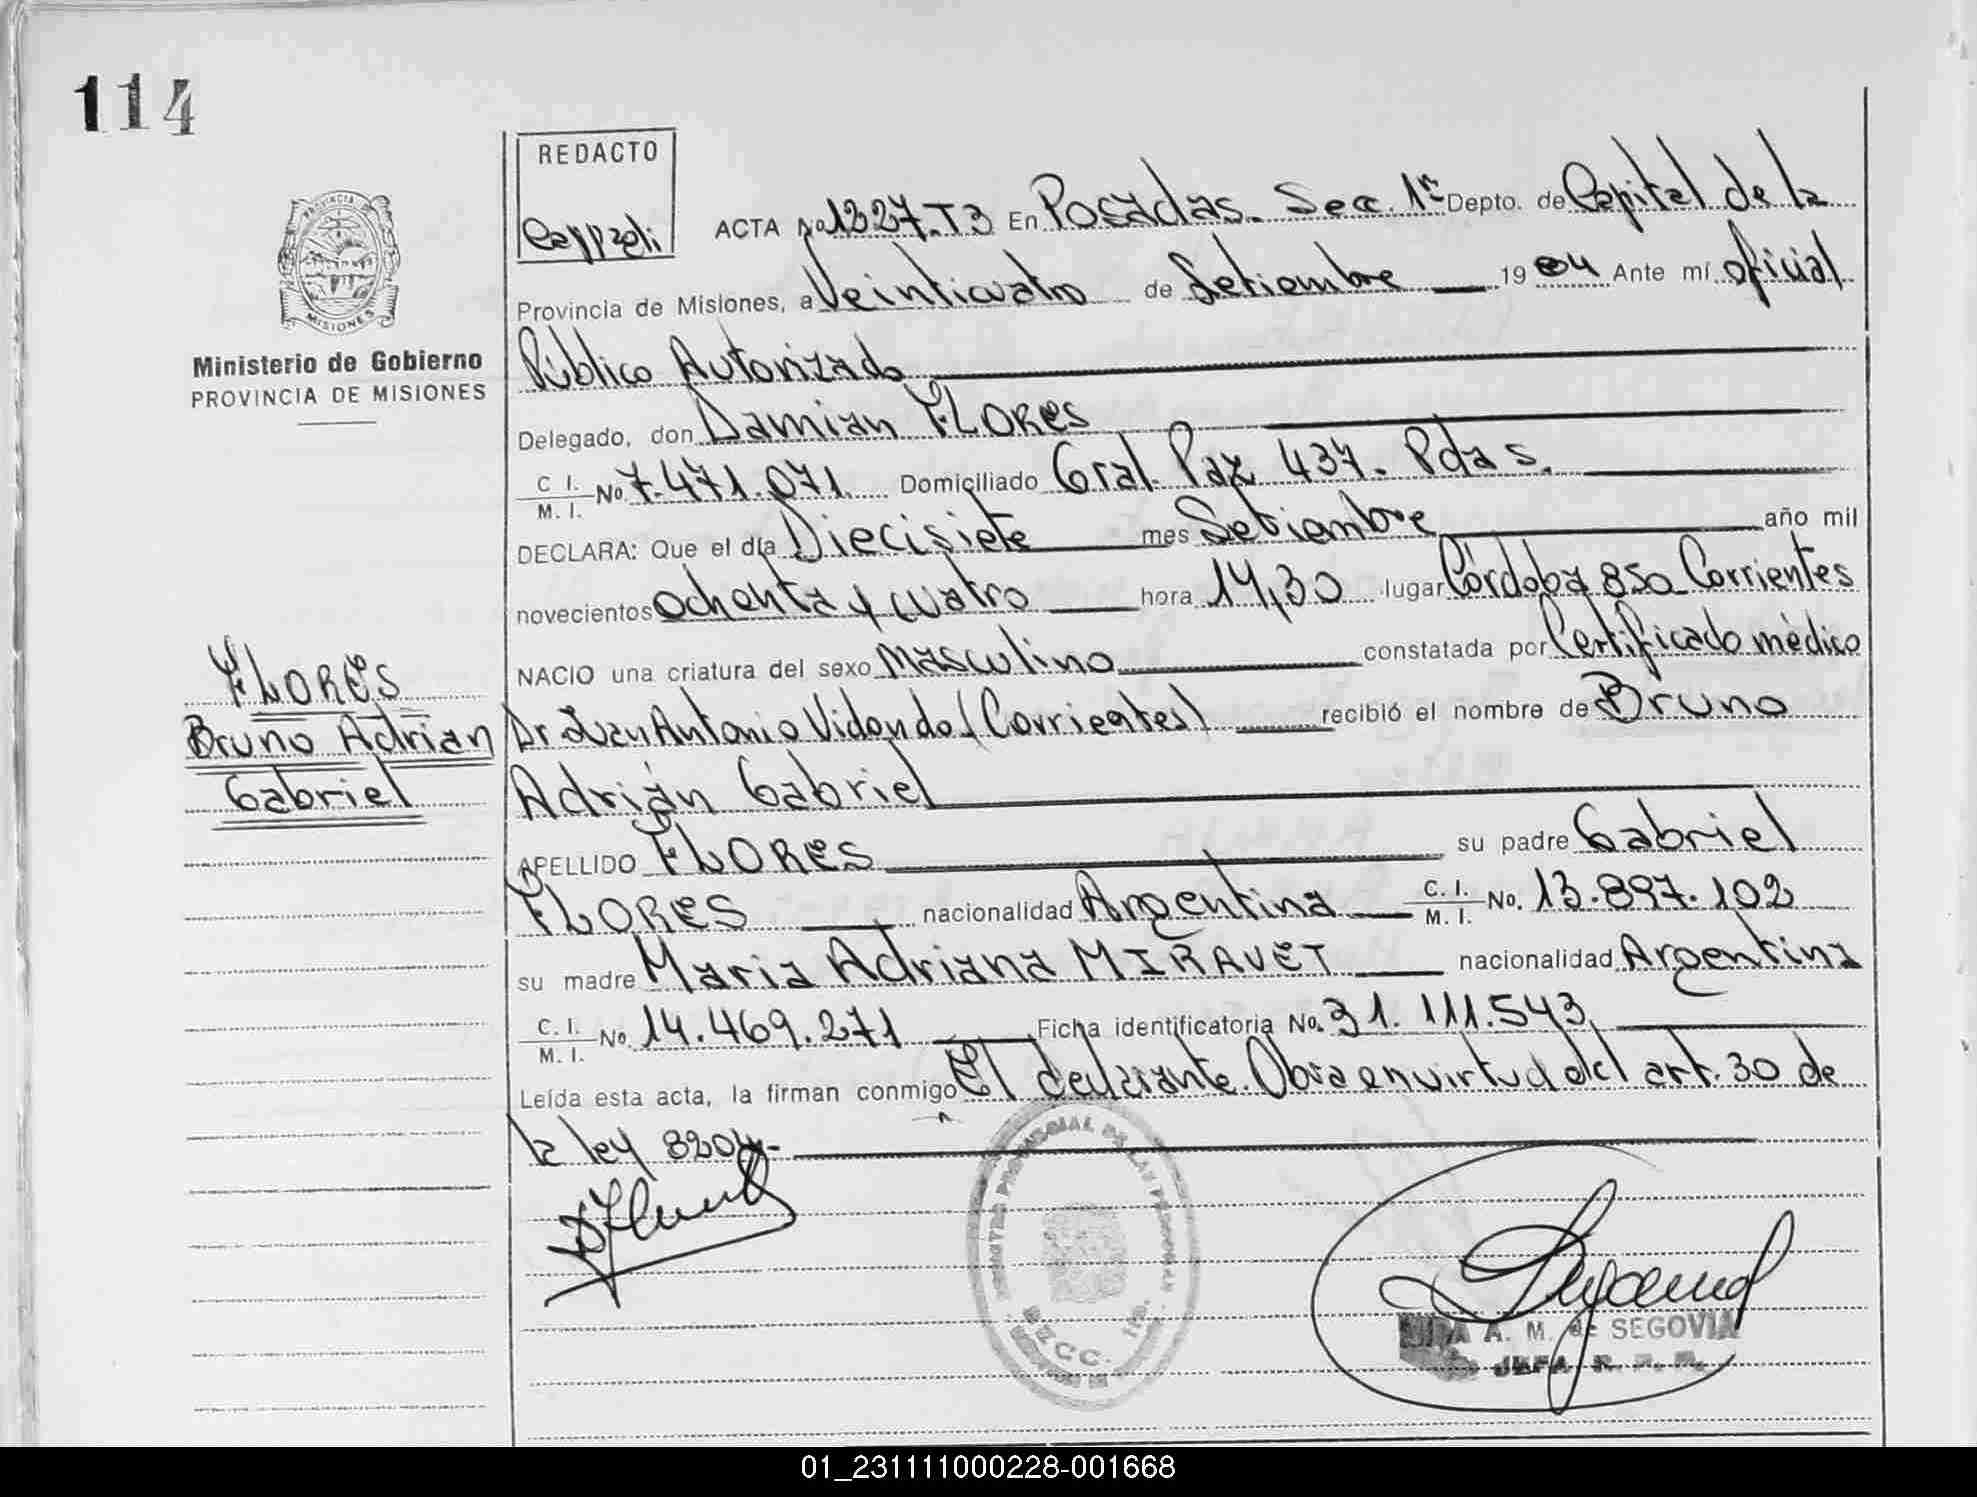 114
REDACTO
Cappzeli
PROVINCIA DE
MISIONES
Ministerio de Gobierno
PROVINCIA DE MISIONES
ACTA No 1327.T3 En Posadas. Sec. 1ra Depto. de Capital de la
Provincia de Misiones, a Veinticuatro de Setiembre 19 84 Ante mí oficial
Público Autorizado
Delegado, don Damian FLORES
C I. M. I. No. 7.471.071 Domiciliado Gral. Paz 437. Pdas.
DECLARA: Que el día Diecisiete mes Setiembre año mil
novecientos ochenta y cuatro hora 14,30 lugar Córdoba 850 Corrientes
NACIO una criatura del sexo masculino constatada por Certificado médico
Dr Juan Antonio Vidondo (Corrientes) recibió el nombre de Bruno
Adrián Gabriel
FLORES
Bruno Adrian
Gabriel
APELLIDO FLORES su padre Gabriel
FLORES nacionalidad Argentina C. I. M. I. No. 13.897.102
su madre Maria Adriana MIRAVET nacionalidad Argentina
C. I. M. I. No. 14.469.271 Ficha identificatoria No. 31.111.543
Leída esta acta, la firman conmigo El declarante. Obra en virtud del art. 30 de
la ley 8204.-
REGISTRO PROVINCIAL DE LAS PERSONAS
SECC. 1ra.
A. M. de SEGOVIA
JEFA R. P. P.
01_231111000228-001668